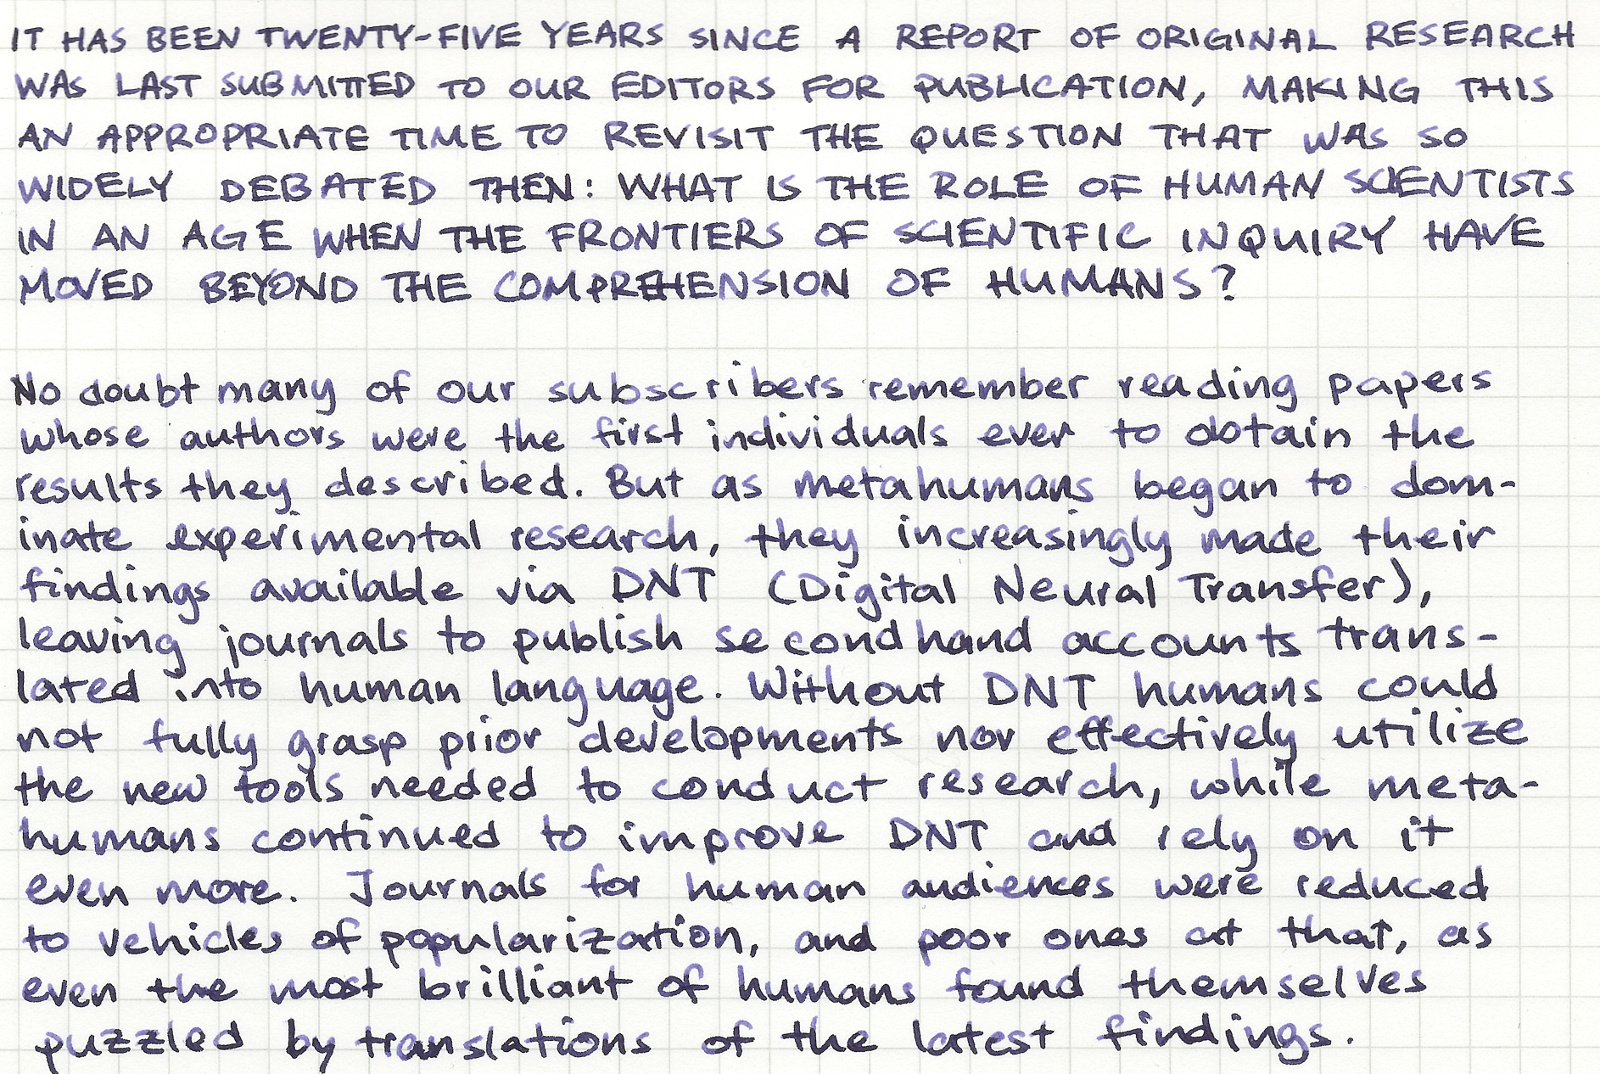 IT HAS BEEN TWENTY-FIVE YEARS SINCE A REPORT OF ORIGINAL RESEARCH
WAS LAST SUBMITTED TO OUR EDITORS FOR PUBLICATION, MAKING THIS
AN APPROPRIATE TIME TO REVISIT THE QUESTION THAT WAS SO
WIDELY DEBATED THEN: WHAT IS THE ROLE OF HUMAN SCIENTISTS
IN AN AGE WHEN THE FRONTIERS OF SCIENTIFIC INQUIRY HAVE
MOVED BEYOND THE COMPREHENSION OF HUMANS?
No doubt many of our subscribers remember reading papers
whose authors were the first individuals ever to obtain the
results they described. But as metahumans began to dom-
inate experimental research, they increasingly made their
findings available via DNT (Digital Neural Transfer),
leaving journals to publish secondhand accounts trans-
lated into human language. Without DNT humans could
not fully grasp prior developments nor effectively utilize
the new tools needed to conduct research, while meta-
humans continued to improve DNT and rely on it
even more. Journals for human audiences were reduced
to vehicles of popularization, and poor ones at that, as
even the most brilliant of humans found themselves
puzzled by translations of the latest findings.